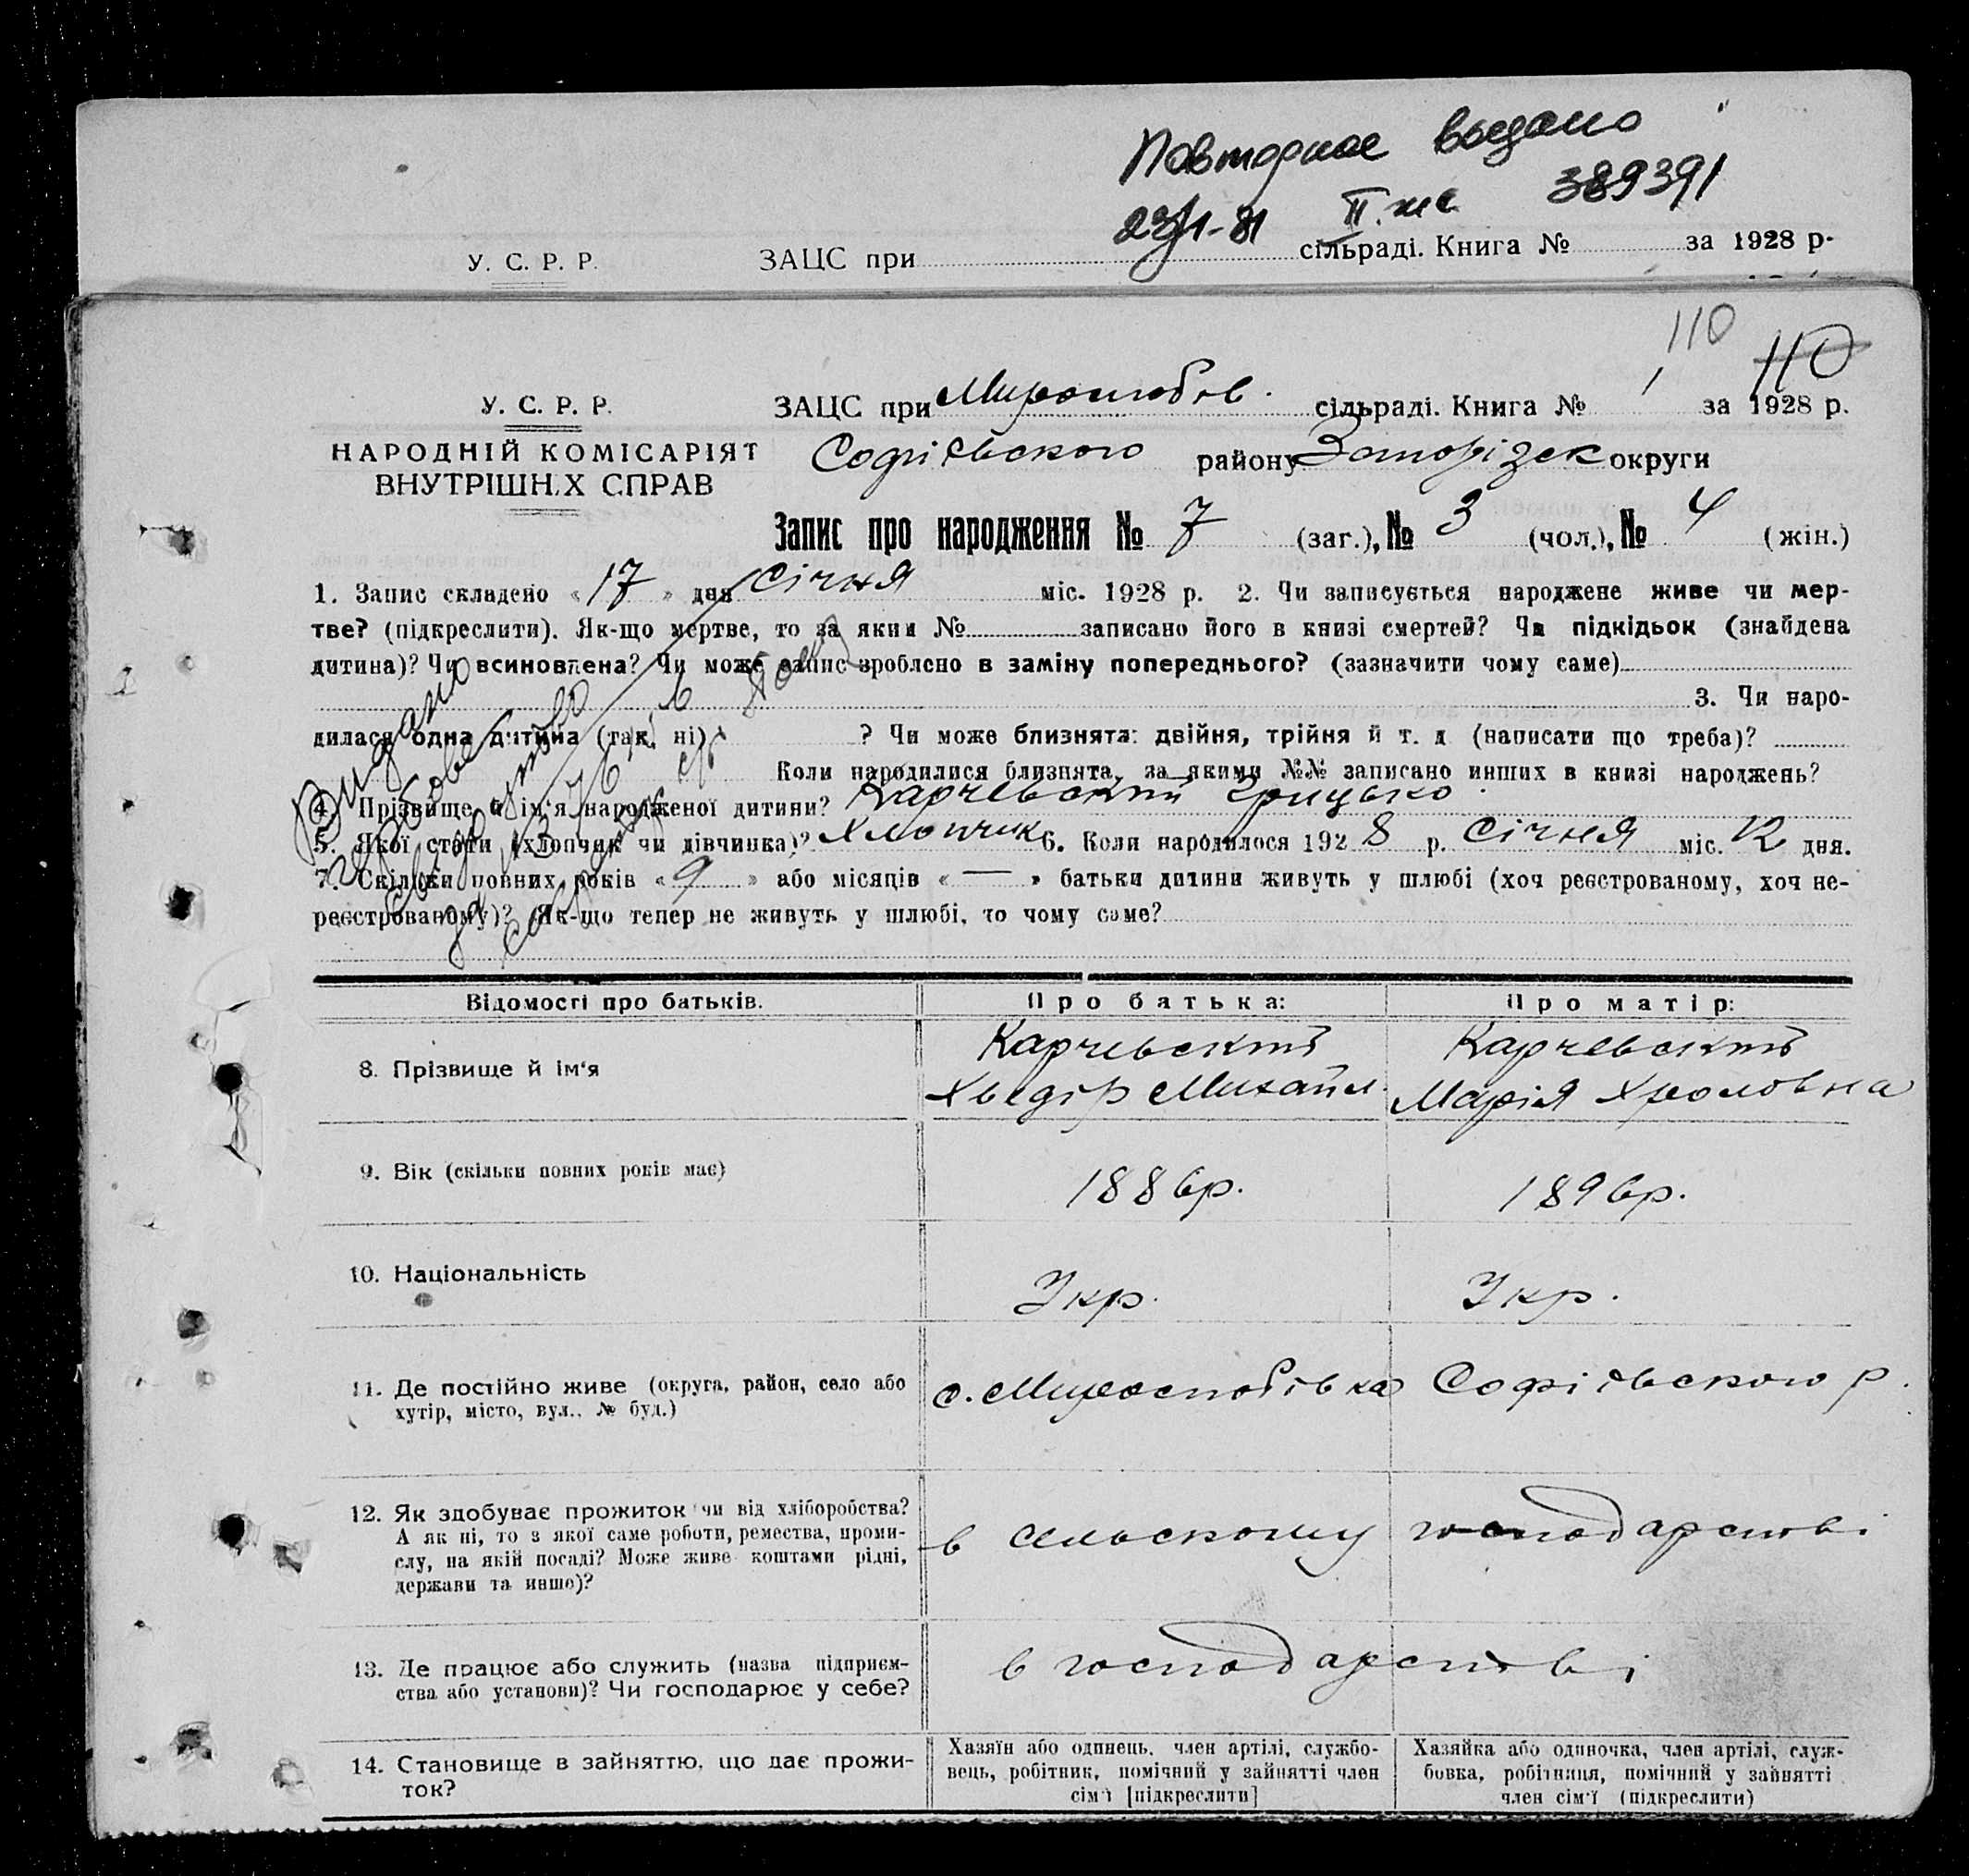 Повторное выдано
23/1-81 II. жс 389391
У. С. Р. Р. ЗАЦС при сільраді. Книга № за 1928 р.
110
110
У. С. Р. Р. ЗАЦС при Миролюбов. сільраді. Книга № 1 за 1928 р.
НАРОДНІЙ КОМІСАРІЯТ Софіївського району Запорізск округи
ВНУТРІШНІХ СПРАВ
Запис про народження № 7 (заг.), № 3 (чол.), № 4 (жін.)
1. Запис складено «17» дня січня міс. 1928 р. 2. Чи записується народжене живе чи мер-
тве? (підкреслити). Як-що мертве, то за яким № записано його в книзі смертей? Чи підкідьок (знайдена
дитина)? Чи всиновлена? Чи може запис зроблено в заміну попереднього? (зазначити чому саме)
3. Чи наро-
дилася одна дитина (так, ні) ? Чи може близнята: двійня, трійня й т. д (написати що треба)?
Коли народилися близнята, за якими №№ записано инших в книзі народжень?
4. Прізвище й ім'я народженої дитини? Карчевський Грицько
5. Якої стати (хлопчик чи дівчинка)? Хлопчик 6. Коли народилося 1928 р. Січня міс. 12 дня.
7. Скільки повних років «9» або місяців «—» батьки дитини живуть у шлюбі (хоч реєстрованому, хоч не-
реєстрованому)? Як-що тепер не живуть у шлюбі, то чому саме?
Видано
Відомості про батьків. Про батька: Про матір:
8. Прізвище й ім'я Карчевскть Хведір Михайл. Карчевскть Марія Хроловна
9. Вік (скільки повних років має) 1886р. 1896р.
10. Національність Укр. Укр.
11. Де постійно живе (округа, район, село або с. Миролюбівка Софіївського р.
хутір, місто, вул., № буд.)
12. Як здобуває прожиток чи від хліборобства? в сільському господарстві
А як ні, то з якої саме роботи, ремества, проми-
слу, на якій посаді? Може живе коштами рідні,
держави та инше)?
13. Де працює або служить (назва підприєм- в господарстві
ства або установи)? Чи господарює у себе?
14. Становище в зайняттю, що дає прожи-
ток?
Хазяїн або одинець, член артілі, службо-
вець, робітник, помічний у зайнятті член
сім'ї [підкреслити]
Хазяйка або одиночка, член артілі, служ-
бовка, робітниця, помічний у зайнятті
член сім'ї (підкреслити)